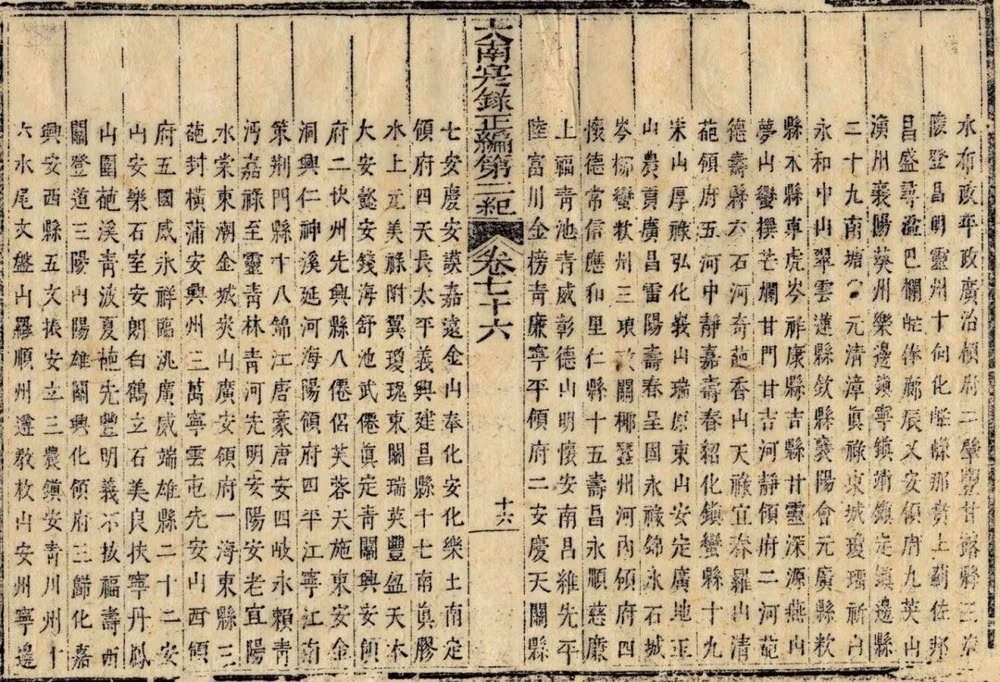 水布政平政廣治領府二肇豐甘露縣三海
陵登昌明靈州十向化那賁上佐邦
昌盛尋溢巴俸廊辰乂安領府九英山
演州襄陽葵州樂邊鎮寧鎮靖鎮定鎮邊縣
二十九南塘元清漳真祿東城瓊瑠
永和中山翠雲蓮縣欽縣襄陽會元廣縣欵
縣水縣車虎岑祚康縣吉縣甘靈深源燕山
夢山蠻撰芒爛甘門甘吉河靜領府二河葩
德壽縣六石河奇葩香山天祿宜春羅山清
葩領府五河中靜嘉壽春紹化鎮蠻縣十九
宋山厚祿弘化峩山瑞原東山安定廣地玉
山農貢廣昌雷陽壽春呈固永祿錦水石城
岑椰蠻軟州三琅政關椰蠶州河內領府四
懷德常信應和里仁縣十五壽昌永順慈廉
上福青池青威彰德山明懷安南昌維先平
陸富川金榜青廉寧平領府二安慶天關縣
大南寔錄正編第二紀 卷七十六 十六
七安慶安謨嘉遠金山奉化安化樂土南定
領府四天長太平義興建昌縣十七南真膠
水上元美祿附翼瓊瑰東關瑞英豐盈天本
大安懿安錢海舒池武僊真定青關興安領
府二快州先興縣八僊侶芙蓉天施東安金
洞興仁神溪延河海陽領府四平江寧江南
策荆門縣十八錦江唐豪唐安四岐永賴青
沔嘉祿至靈青林青河先明安陽安老宜陽
水棠東潮金城炭山廣安領府一海東縣三
葩封橫蒲安興州三萬寧雲屯先安山西領
府五國威永祥臨洮廣威端雄縣二十二安
山安樂石室安朗白鶴立石美良扶寧丹鳳
山圍葩溪青波夏葩先豐明義不拔福壽西
關登道三陽丹陽雄關興化領府三歸化嘉
興安西縣五文振安立三農鎮安青川州十
六水尾文盤山羅順州遵教枚山安州寧邊